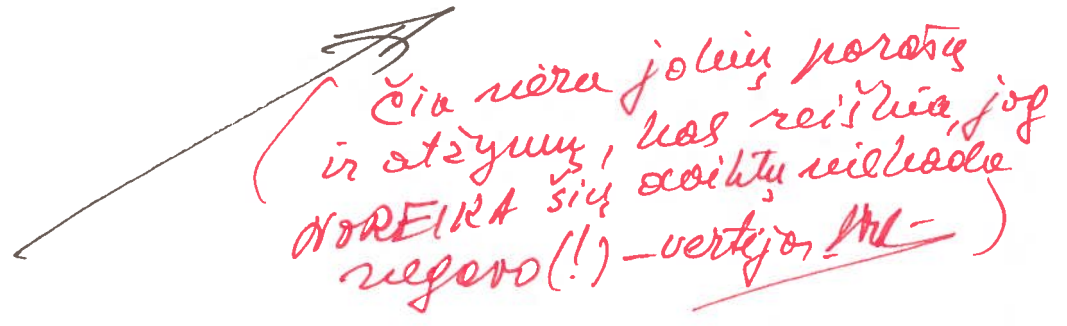 (Čia nėra jokių parašų
ir atžymų, kas reiškia, jog
NOREIKA šių daiktų niekada
negavo(!) – vertėjas
)